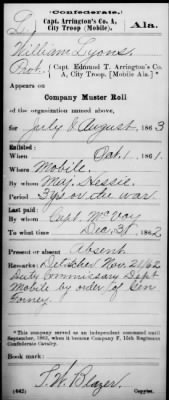 (Confederate.)
L
Capt. Arrington's Co. A,
City Troop (Mobile).
Ala.
William Lyons
Pvt., Capt. Edmund T. Arrington's Co.
A, City Troop, [Mobile Ala.]*
Appears on
Company Muster Roll
of the organization named above,
for July & August, 1863
Enlisted:
When Oct. 1, 1861
Where Mobile
By whom Maj. Hessie
Period 3 yrs or the war
Last paid:
By whom Capt. McVoy
To what time Dec. 31, 1862
Present or absent Absent
Remarks: Detached Nov. 21/62
Duty Commissary Dept
Mobile by order of Gen
Forney.
*This company served as an independent command until
September, 1863, when it became Company F, 15th Regiment
Confederate Cavalry.
Book mark:
F. W. Blazer
(642) Copyist.